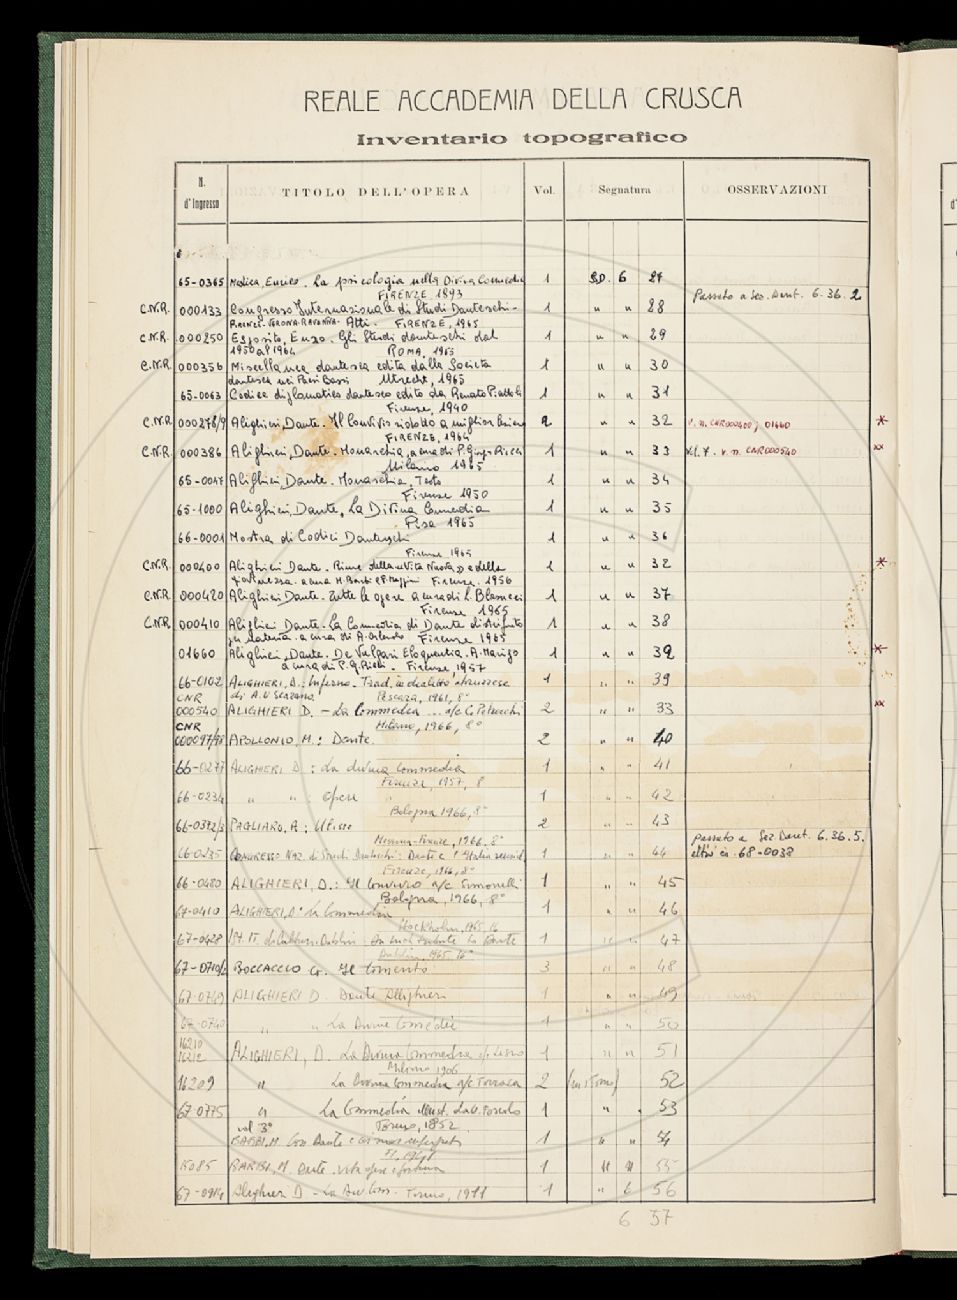 REALE ACCADEMIA DELLA CRUSCA
Inventario topografico
N. d'Ingresso TITOLO DELL'OPERA Vol. Segnatura OSSERVAZIONI
65-0365 Modica, Enrico. La psicologia nella Divina Commedia 1 S.D. 6 27
FIRENZE 1893 Passato a Sez. Dant. 6.36.2
C.N.R. 000133 Congresso Internazionale di Studi Danteschi- 1 " " 28
FIRENZE-VERONA-RAVENNA- Atti. FIRENZE, 1965
C.N.R. 000250 Esposito, Enzo. Gli Studi danteschi dal 1 " " 29
1950 al 1964 ROMA, 1965
C.N.R. 000356 Miscellanea dantesca edita dalla Società 1 " " 30
dantesca nei Paesi Bassi Utrecht, 1965
65-0063 Codice diplomatico dantesco edito da Renato Piattoli 1 " " 31
Firenze, 1940
C.N.R. 000278/9 Alighieri, Dante. Il Convivio ridotto a miglior lezione 2 " " 32 v. n. CNR000400; 01660 *
FIRENZE, 1964
C.N.R. 000386 Alighieri, Dante. Monarchia, a cura di P. Gasp. Ricci 1 " " 33 v. n. CNR000540 **
Milano 1965
65-0017 Alighieri, Dante. Monarchia, Testo 1 " " 34
Firenze 1950
65-1000 Alighieri, Dante, La Divina Commedia 1 " " 35
Pisa 1965
66-0001 Mostra di Codici Danteschi 1 " " 36
Firenze 1965
C.N.R. 000400 Alighieri Dante. Rime della "Vita Nuova" e della 1 " " 32 *
giovinezza. a cura M. Barbi e F. Maggini Firenze. 1956
C.N.R. 000420 Alighieri Dante. Tutte le opere a cura di L. Blasucci 1 " " 37
Firenze 1965
C.N.R. 000410 Alighieri Dante. La Commedia di Dante distribuita 1 " " 38
per materia. a cura di A. Orlando Firenze 1965
01660 Alighieri, Dante. De Vulgari Eloquentia. A. Marigo 1 " " 32 *
a cura di P. G. Ricci. Firenze, 1957
66-0102 ALIGHIERI, D.: Inferno. Trad. in dialetto abruzzese 1 " " 39
CNR di A. U Scarano. Pescara, 1961, 8°
000540 ALIGHIERI D. - La Commedia ... a/c G. Petrocchi 2 " " 33 **
CNR Milano, 1966, 8°
000097/98 APOLLONIO, M.: Dante. 2 " " 40
66-0277 ALIGHIERI D : La divina Commedia 1 " " 41
Firenze, 1957, 8
66-0234 " " : Opere 1 " " 42
Bologna 1966, 8°
66-0372/3 PAGLIARO, A.; Ulisse 2 " " 43
Messina-Firenze, 1966, 8° passato a Sez. Dant. 6.36.5.
66-0235 CONGRESSO Naz. di Studi Danteschi: Dante e l'Italia merid. 1 " " 44 68-0038
Firenze, 1966, 8°
66-0480 ALIGHIERI, D.: Il Convivio a/c Simonelli 1 " " 45
Bologna, 1966, 8°
67-0410 ALIGHIERI, D: La Commedia 1 " " 46
Stockholm, 1965, 16
67-0428 Ist. It. di Cultura. Dublin - An Irish tribute to Dante 1 " " 47
Dublin, 1965, 16°
67-0710/2 BOCCACCIO G. Il Comento 3 " " 48
67-0749 ALIGHIERI D. Dante Alighieri 1 " " 49
67-0740 " " La Divine Comédie 1 " " 50
16210
16212 ALIGHIERI, D. La Divina Commedia 1 " " 51
Milano 1906
16209 " La Divina Commedia a/c Torraca 2 " 52
67-0775 " La Commedia illust. da U. Foscolo 1 " " 53
vol 3° Torino, 1852.
BARBI, M. Con Dante e coi suoi interpreti 1 " " 54
FI, 1941
15085 BARBI, M. Dante. vita opere e fortuna 1 " " 55
67-0914 Alighieri D - La Div. Com. Torino, 1911 1 " 6 56
6 57